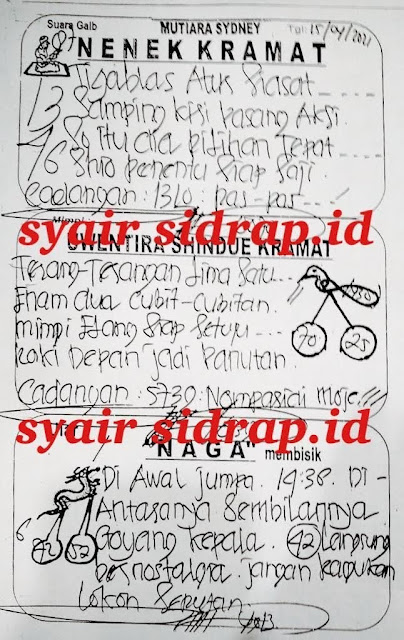 Suara Gaib MUTIARA SYDNEY Tgl: 15/04/2021
NENEK KRAMAT
Tigablas Atuk Siasat
13 Samping kisi pasang Aksi
Itu dia pilihan Tepat
76 Shio penentu Siap Saji
Cadangan: 1310: pas-pas
Mimpi
syair sidrap.id
UWENTIRA SHINDUE KRAMAT
Terang-Terangan Lima Satu
Enam dua Cubit-Cubitan
mimpi Elang Siap Setuju
kaki Depan jadi Panutan
70 25
Cadangan: 5739:
syair sidrap.id
"NAGA" membisik
Di Awal jumpa. 14:38. Di-
Antaranya Sembilannya
Goyang kepala. 42 Langsung
bernostalgia. jangan
42 52